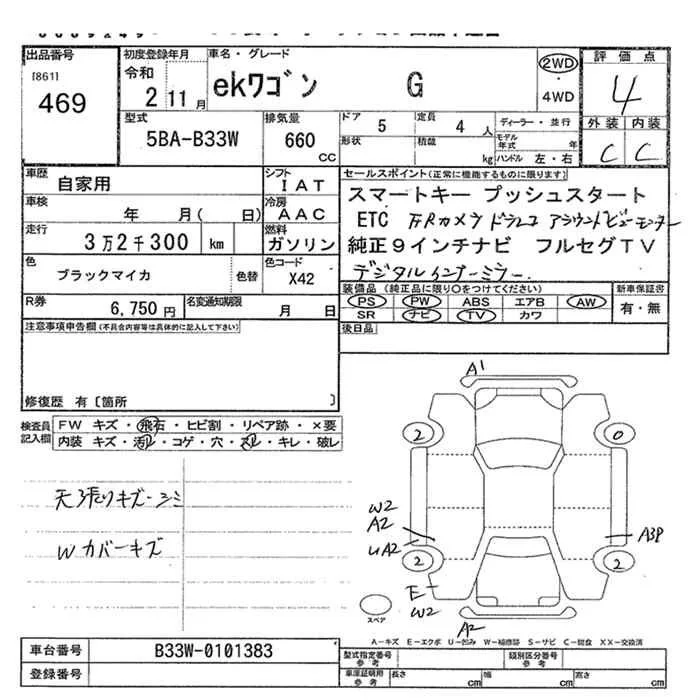 出品番号
[861]
469
初度登録年月
令和
2 11月
車名・グレード
ekワゴン G
2WD
4WD
評価点
4
外装 内装
C C
型式
5BA-B33W
排気量
660
cc
ドア
5
定員
4 人
形状
積載
kg
ディーラー・並行
モデル年式 年
ハンドル 左・右
車歴
自家用
シフト
IAT
車検
年 月( 日)
冷房
AAC
走行
3万2千300 km
燃料
ガソリン
色
ブラックマイカ
色替
色コード
X42
R券
6,750円
名変通知期限
月 日
セールスポイント(正常に機能するものに限ります)
スマートキー プッシュスタート
ETC カメラ ドラレコ アラウンドビューモニター
純正9インチナビ フルセグTV
デジタルインナーミラー
装備品(純正品に限り○をつけてください)
PS PW ABS エアB AW
SR ナビ TV カワ
新車保証書
有・無
後日品
注意事項申告欄(不具合内容等は具体的に記入して下さい)
修復歴 有〔箇所 〕
検査員記入欄
FW キズ・飛石・ヒビ割・リペア跡・×要
内装 キズ・汚れ・コゲ・穴・スレ・キレ・破レ
天張りキズ・シミ
Wカバーキズ
A1
2
0
W2
A2
UA2
A3P
2
2
E
W2
A2
スペア
A-キズ E-エクボ U-凹み W-補修跡 S-サビ C-腐食 XX-交換済
車台番号
B33W-0101383
登録番号
型式指定番号
参考
類別区分番号
参考
車庫証明用
参考
長さ cm
幅 cm
高さ cm